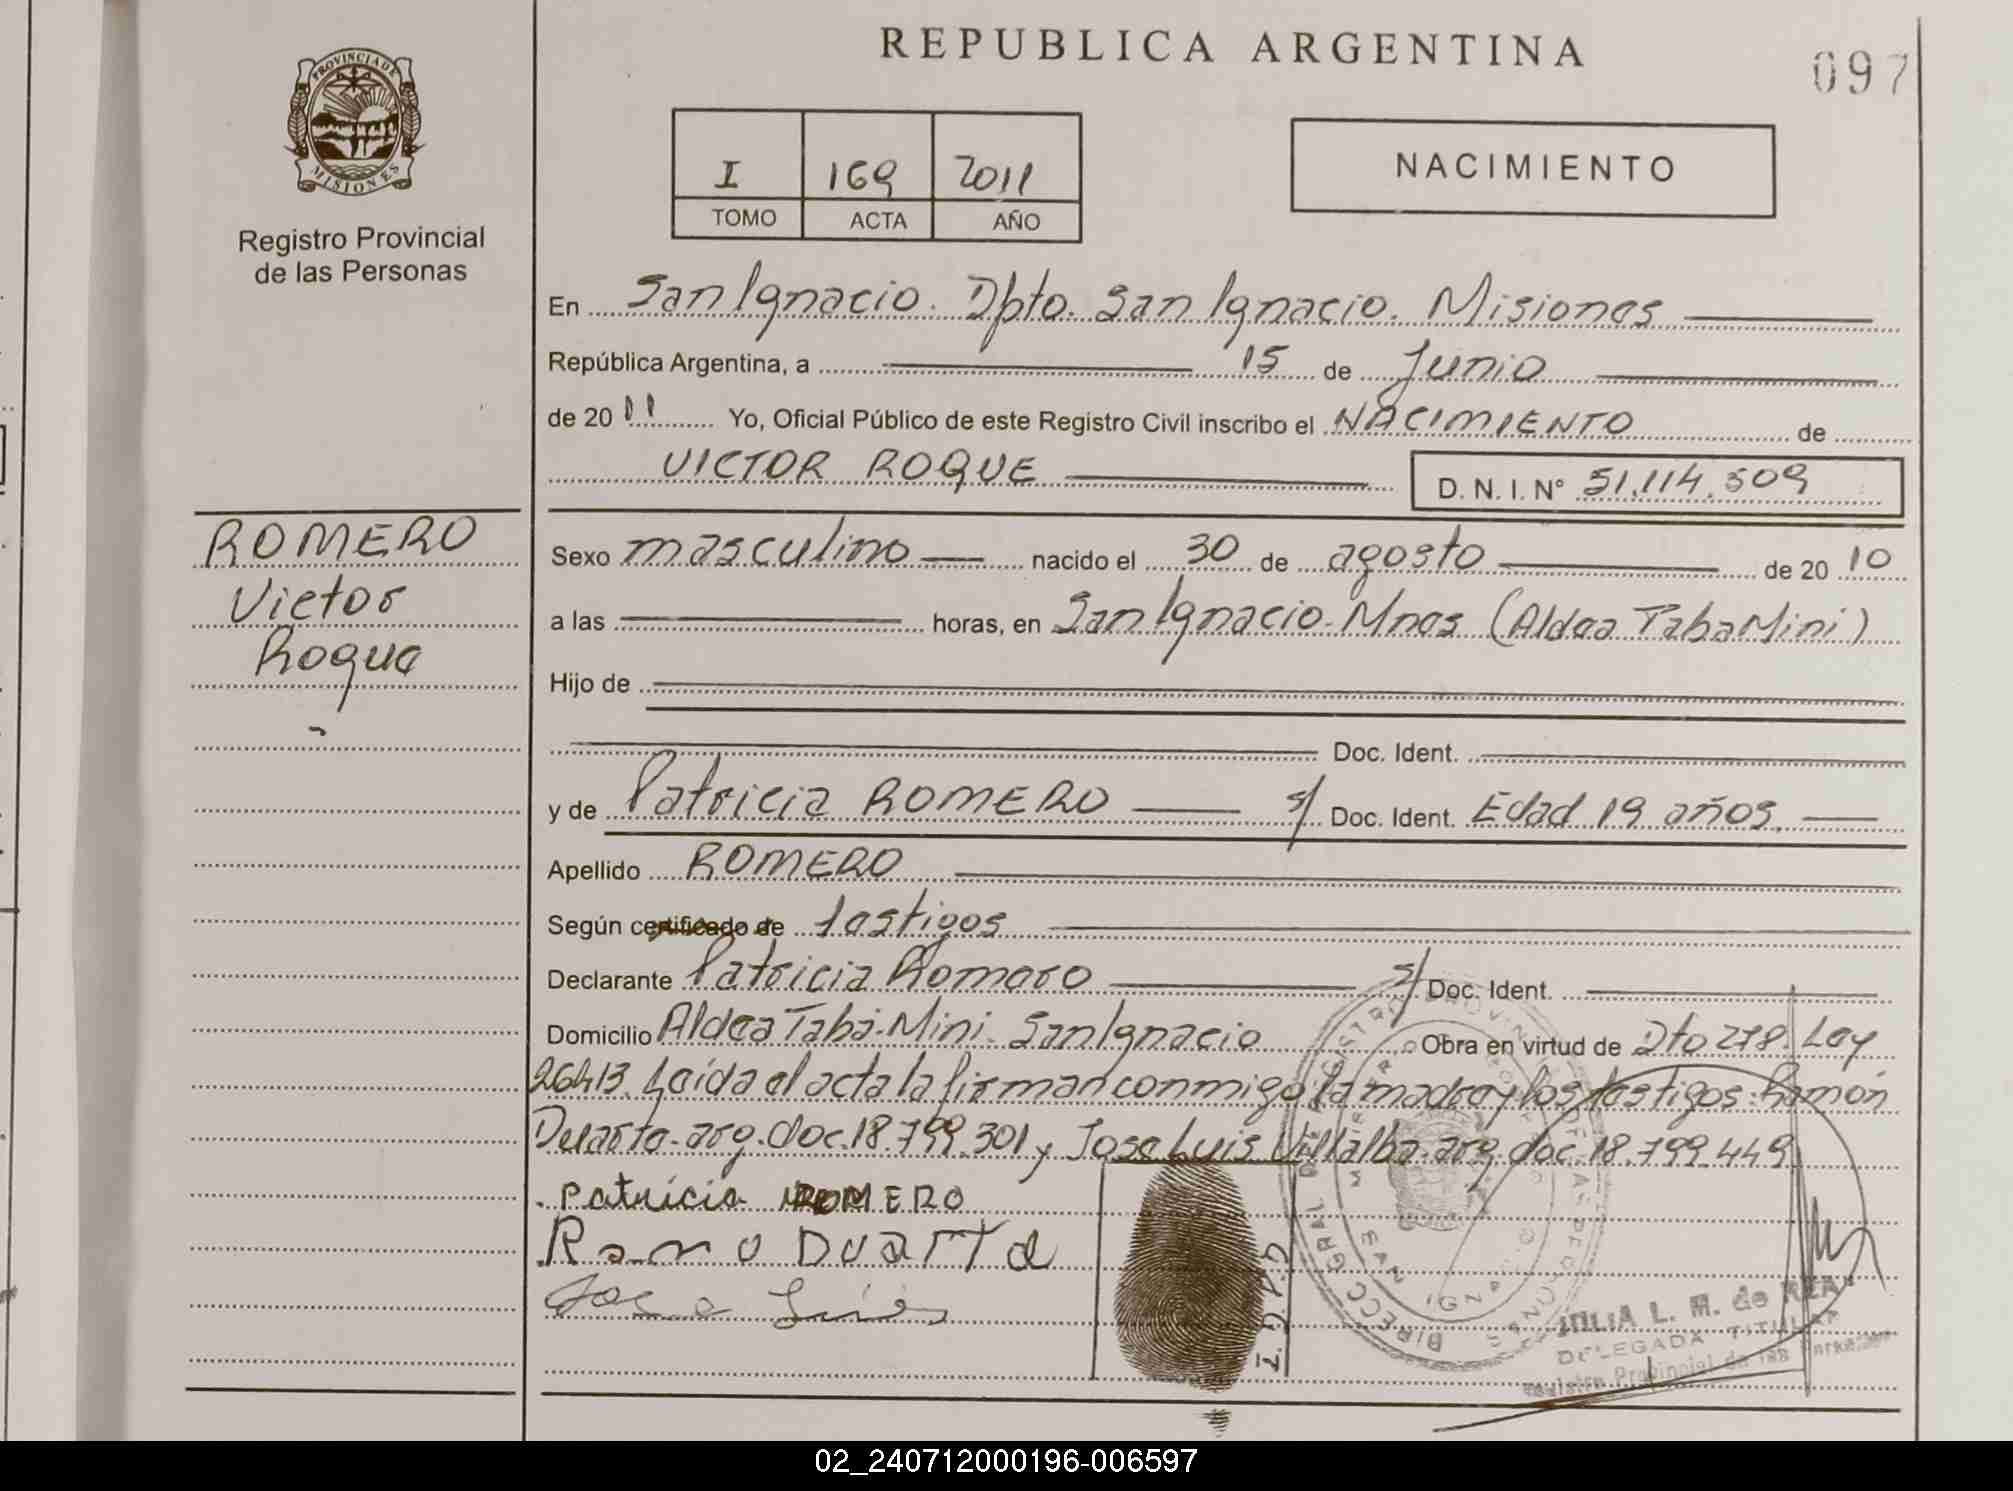 PROVINCIA DE
MISIONES
Registro Provincial
de las Personas
REPUBLICA ARGENTINA
097
I 169 2011
TOMO ACTA AÑO
NACIMIENTO
En San Ignacio. Dpto. San Ignacio. Misiones
República Argentina, a 15 de Junio
de 2011 Yo, Oficial Público de este Registro Civil inscribo el NACIMIENTO de
VICTOR ROQUE D. N. I. N° 51.114.509
ROMERO
Victor
Roque
Sexo masculino nacido el 30 de agosto de 2010
a las horas, en San Ignacio. Mnes (Aldea Taba Mini)
Hijo de
Doc. Ident.
y de Patricia ROMERO s/ Doc. Ident. Edad 19 años.
Apellido ROMERO
Según certificado de testigos
Declarante Patricia Romero s/ Doc. Ident.
Domicilio Aldea Tabá-Mini. San Ignacio Obra en virtud de Dto 278. Ley
26413. Leída el acta la firman conmigo la madre y los testigos: Ramón
Duarte. arg. doc. 18.799.301 y Jose Luis Villalba. arg. doc. 18.799.449
Patricia ROMERO
Ramo Duarte
Jose Luis
I.D.G.D.
JULIA L. M. de
DELEGADA TITULAR
Registro Provincial de las Personas
02_240712000196-006597